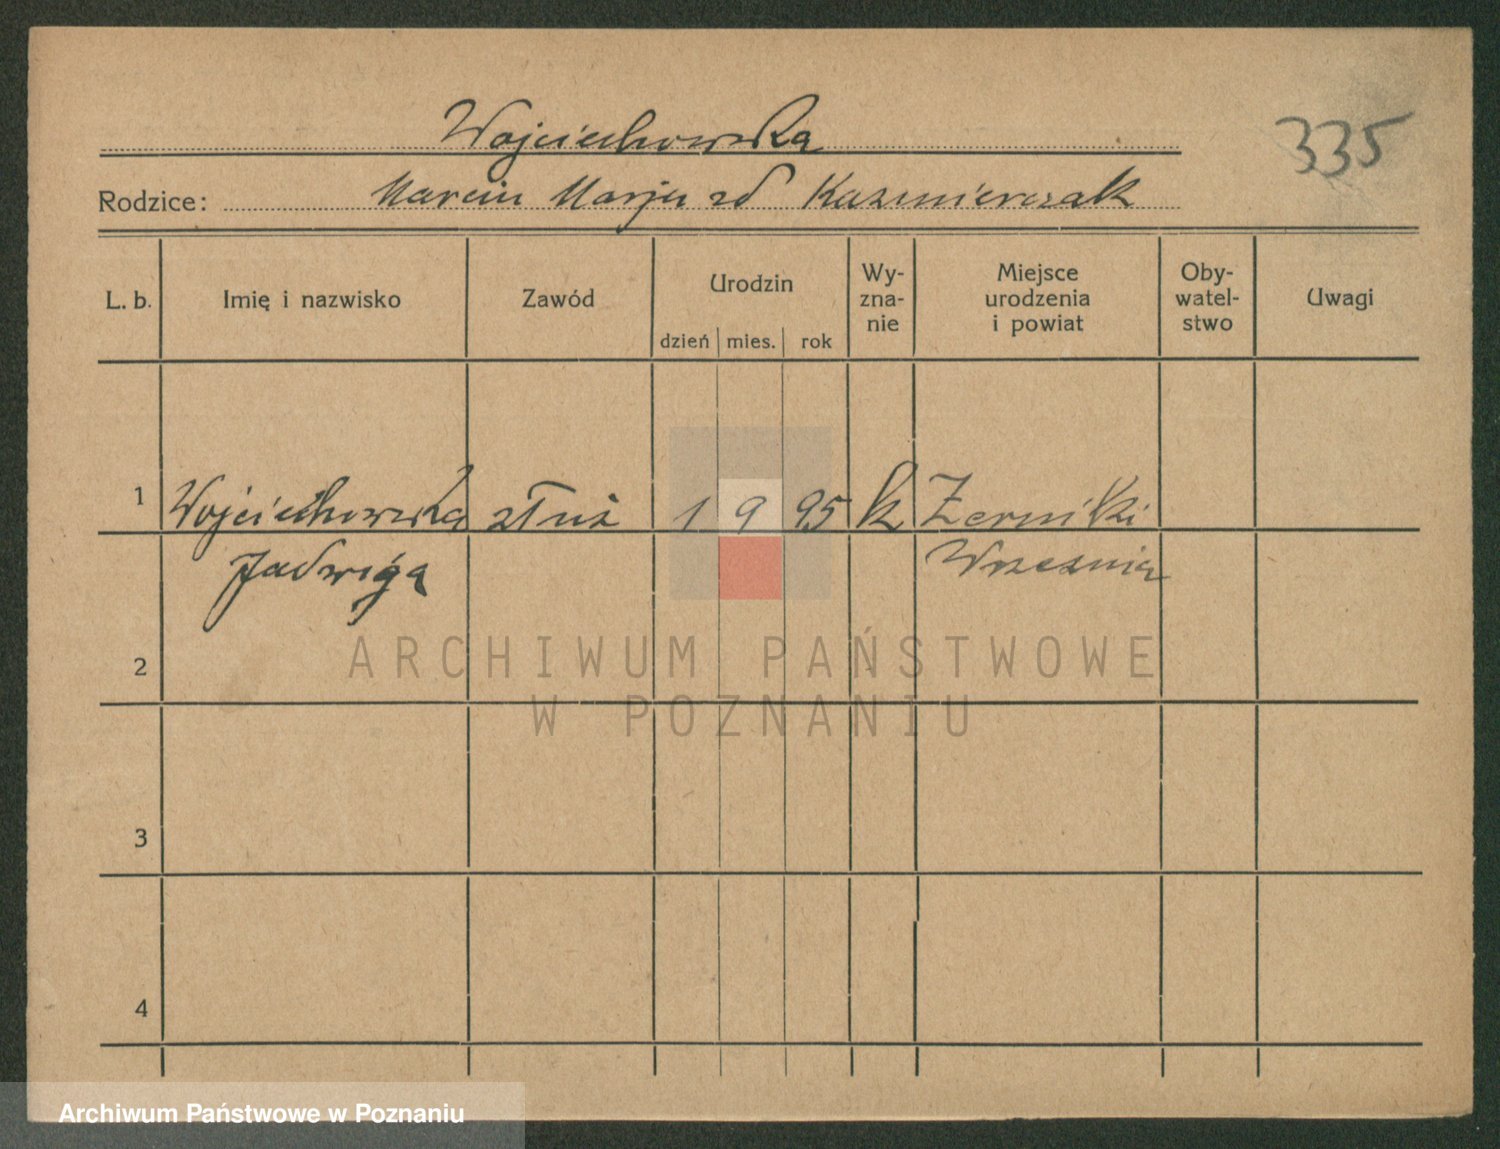 Wojciechowska
335
Rodzice: Marcin Marja zd Kazmierczak
L. b.
Imię i nazwisko
Zawód
Urodzin
dzień mies. rok
Wy-
zna-
nie
Miejsce
urodzenia
i powiat
Oby-
watel-
stwo
Uwagi
1 Wojciechowska służ 1 9 95 k Zerniki
Jadwiga Września
2
3
4
ARCHIWUM PAŃSTWOWE
W POZNANIU
Archiwum Państwowe w Poznaniu